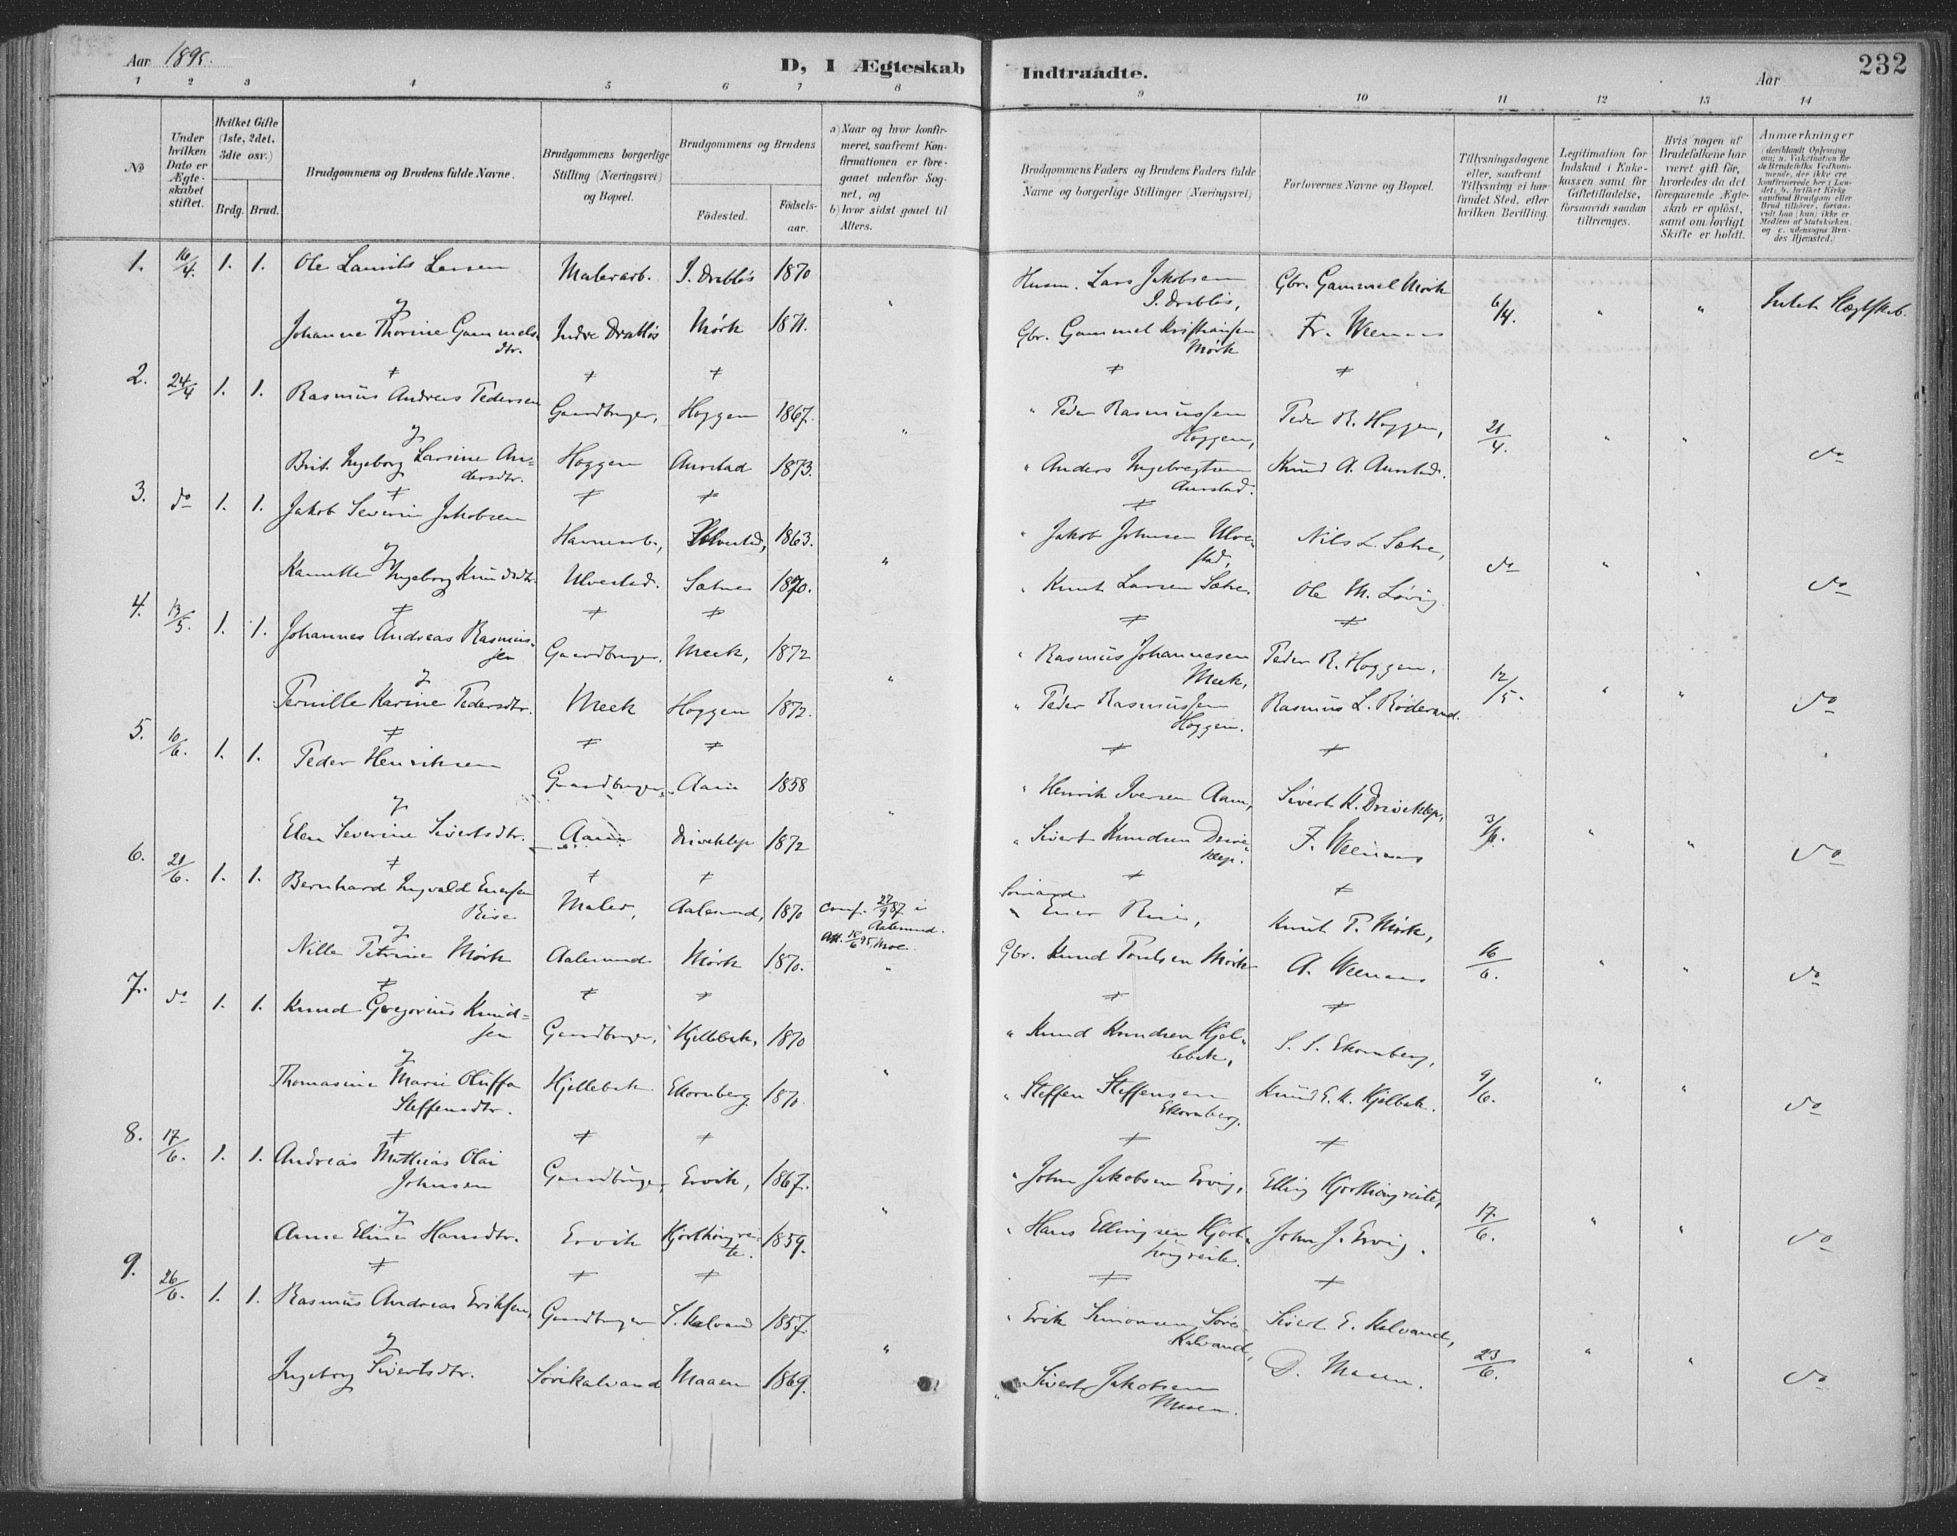 Aar 1895.
D, I Ægteskab Indtraadte.
Aar
232
1 2 3 4 5 6 7 8 9 10 11 12 13 14
No
Under hvilken Dato er Ægteskabet stiftet.
Hvilket Gifte (1ste, 2det, 3die osv.)
Brdg. Brud.
Brudgommens og Brudens fulde Navne.
Brudgommens borgerlige Stilling (Næringsvei) og Bopæl.
Brudgommens og Brudens
Födested.
Födsels-aar.
a) Naar og hvor konfirmeret, saafremt Konfirmationen er foregaaet udenfor Sognet, og
b) hvor sidst gaaet til Alters.
Brudgommens Faders og Brudens Faders fulde Navne og borgerlige Stillinger (Næringsvei)
Forlovernes Navne og Bopæl.
Tillysningsdagene eller, saafremt Tillysning ei har fundet Sted, efter hvilken Bevilling.
Legitimation for Indskud i Enkekassen samt for Giftetilladelse, forsaavidt saadan tiltrænges.
Hvis nogen af Brudefolkene har været gift før, hvorledes da det foregaaende Ægteskab er oplöst, samt om lovligt Skifte er holdt.
Anmærkninger
1. 16/4. 1. 1. Ole Laurits Larsen Malerarb. I. Drabløs 1870 " Husm. Lars Jakobsen I. Drabløs, Gbr. Gammel Mørk 6/4. " "
&
Johanne Thorine Gammelsdtr. Indre Drabløs Mørk 1871. Gbr. Gammel Kristiansen Mørk Fr. Weenaas
2. 24/4 1. 1. Rasmus Andreas Pedersen Gaardbruger, Hoggen 1867. " " Peder Rasmussen Hoggen, Peder R. Hoggen, 21/4. " " do
&
Brit Ingeborg Larsine Andersdtr. Hoggen Aurstad 1873. " Anders Ingebregtsen Aurstad. Knud A. Aurstad.
3. do 1. 1. Jakob Severin Jakobsen Havnearb., Ulvestad, 1863. " " Jakob Johnsen Ulvestad, Nils L. Sætre, do " " do
&
Ingeborg Knudsdtr. Ulvestad. Sætre 1870. " Knut Larsen Sætre. Ole M. Løvig
4. 13/5 1. 1. Johannes Andreas Rasmussen Gaardbruger, Meek, 1872 " " Rasmus Johannesen Meek, Peder R. Hoggen, 12/5. " " do
&
Pernille Karine Pedersdtr. Meek Hoggen 1872. " Peder Rasmussen Hoggen. Rasmus L. Røderand.
5. 10/6. 1. 1. Peder Henriksen Gaardbruger, Aam 1858 " " Henrik Iversen Aam, Sivert K. Driveklep, 3/6. " " do
&
Elen Severine Sivertsdtr. Aam Driveklep 1872 " Sivert Knudsen Driveklep. F. Weenaas
6. 21/6. 1. 1. Bernhard Ingvald Enersen Rise Maler, Aalesund, 1870 Conf. 27/9 87 i Aalesund. Sömand Ener Rise, Knut P. Mørk, 16/6. " " do
&
Nille Petrine Mørk Aalesund Mørk 1870. " Gbr. Knud Poulsen Mørk A. Weenaas
7. do 1. 1. Knud Gregorius Knudsen Gaardbruger, Hjellebak, 1870 " " Knud Knudsen Hjellebak, S. S. Ekornberg, 9/6. " " do
&
Thomasine Marie Oluffa Steffensdtr. Hjellebak Ekornberg 1870. " Steffen Steffensen Ekornberg. Knud E. K. Hjelbak.
8. 17/6. 1. 1. Andreas Mathias Olai Johnsen Gaardbruger, Ervik, 1867. " " John Jakobsen Ervig, Elling Hjorthøugreite, 17/6. " " do
&
Anne Eline Hansdtr. Ervik Hjorthøugreite. 1859. " Hans Ellingsen Hjorthøugreite. John J. Ervig.
9. 26/6. 1. 1. Rasmus Andreas Eriksen, Gaardbruger S. Kalvand 1857. " " Erik Simonsen Søre Kalvand, Sivert E. Kalvand, 23/6. " " do
&
Ingeborg Sivertsdtr. Sørekalvand Maaen 1869. " Sivert Jakobsen Maaen. D. Maaen.